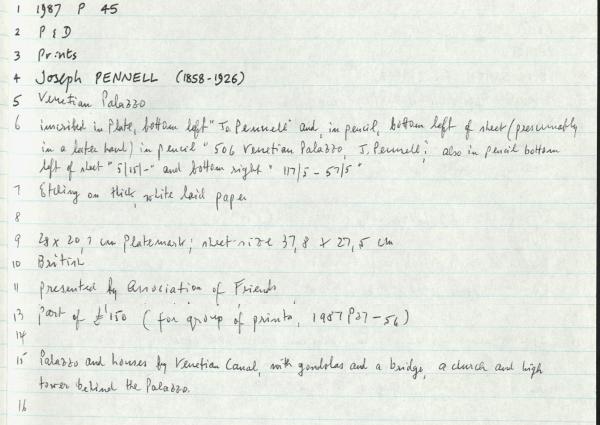 1 1987 P 45
2 P & D
3 Prints
4 Joseph PENNELL (1858-1926)
5 Venetian Palazzo
6 inscribed in Plate, bottom left "Jo. Pennell" and, in pencil, bottom left of sheet (presumably
in a later hand) in pencil "506 Venetian Palazzo, J. Pennell"; also in pencil bottom
left of sheet "5/15/-" and bottom right "117/5 - 57/5"
7 Etching on thick, white laid paper
8
9 28 x 20,7 cm Platemark; sheet-size 37,8 x 27,5 cm
10 British
11 presented by Association of Friends
13 part of £150 (for group of prints, 1987 P27-56)
14
15 Palazzo and houses by Venetian Canal, with gondolas and a bridge, a church and high
tower behind the Palazzo.
16